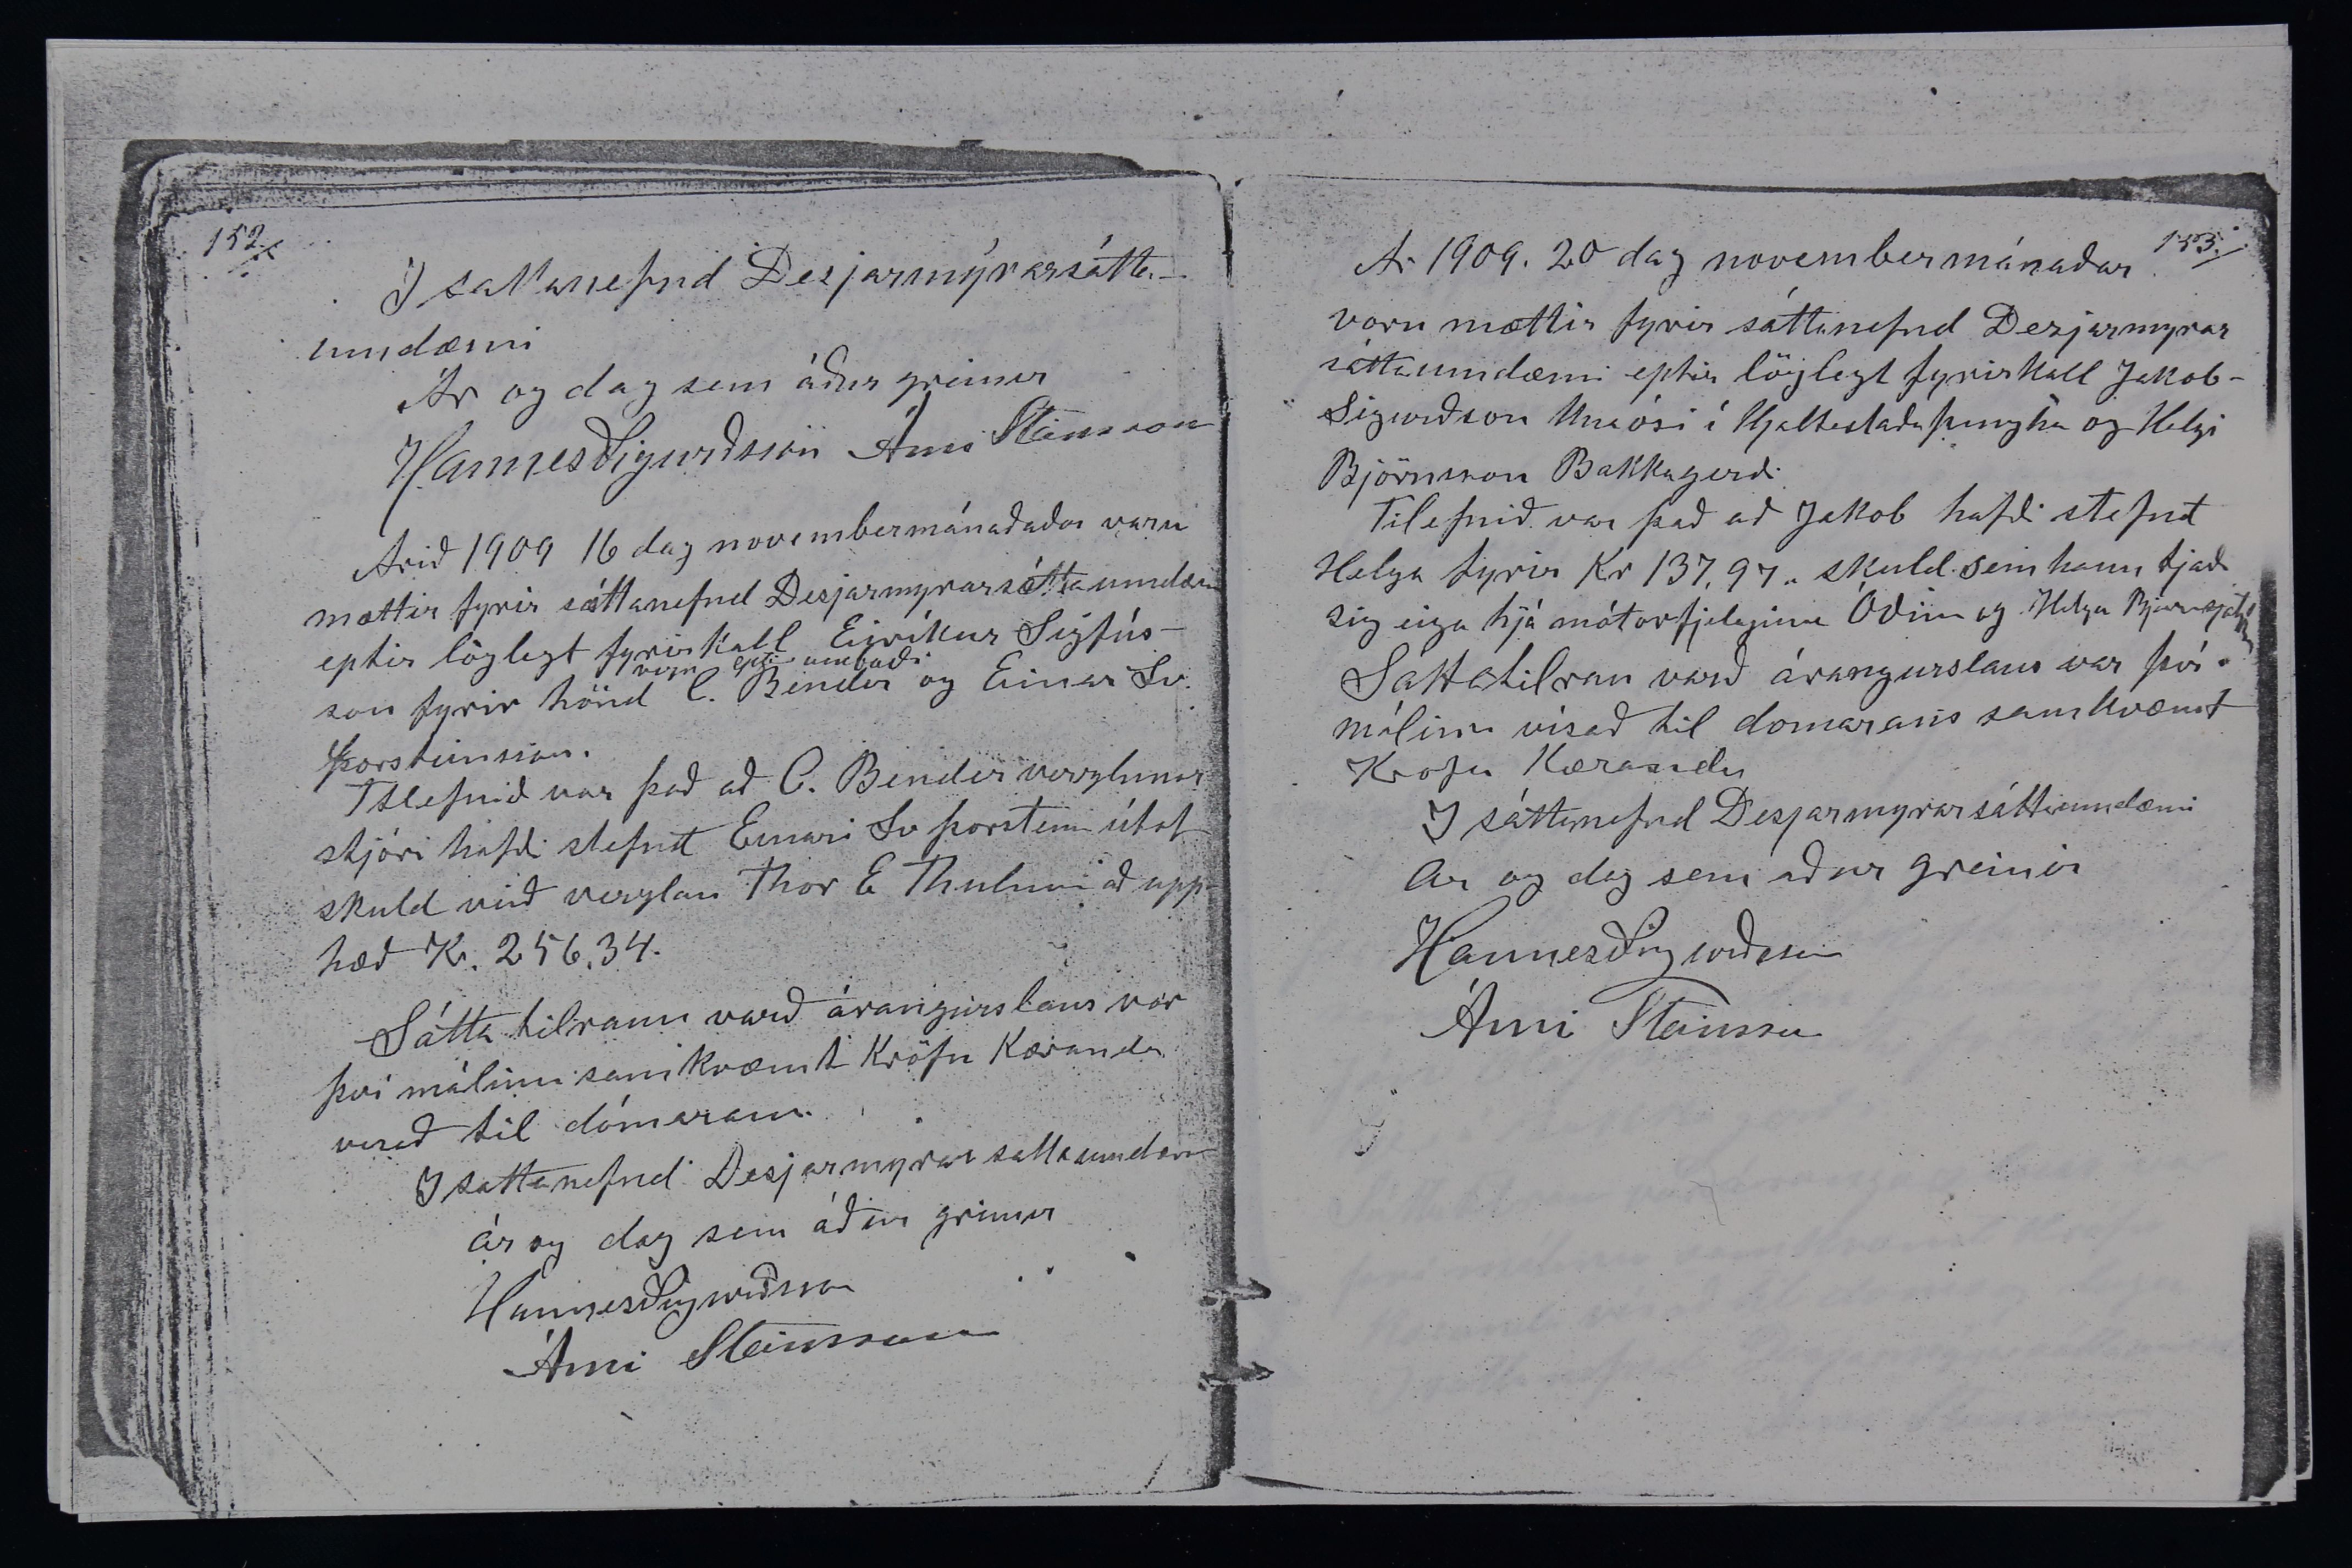 152
I sattanefnd Desjarmýrarsátta-
umdæmi
Ár og dag sem áður greinir
Hannes Sigurðsson Árni Steinsson
Arið 1909 16 dag novembermánaðaðar varu
mættir fyrir sáttanefnd Desjarmyrarsáttaumdæm
eptir löglegt fyrirkall Eiríkur Sigfús-
epti umboði
son fyrir hönd C. Bender og Einar Sv.
Þorsteinsson.
Tilefnið var það að C. Bender verzlunar
stjóri hafdi stefnt Einari Sv Þorstein útaf
skuld við verzlan Thor E Thulinii að upp
hæð Kr. 256.34.
Sátta tilraun varð árangurslaus var
því málinu samkvæmt Kröfu Kæranda
visað til dómarans.
I sattanefnd Desjarmyrar sattaumdæm
ár og dag sem áður greinir
Hannes Sigurðsson
Árni Steinsson
153.
Ár 1909. 20 dag novembermánaðar
voru mættir fyrir sáttanefnd Desjarmyrar
sáttaumdæmi eptir löglegt fyrirkall Jakob-
Sigurðson Unaósi í Hjaltastaðaþinghá og Helgi
Björnsson Bakkagerdi
Tilefnið var það að Jakob hafdi stefnt
Helga fyrir Kr 137,97.. skuld sem hann tjáði
sig eiga hjá mótorfjelaginu Óðinn og Helga Björnss
Sáttatilraun varð árangurslaus var því
málinu vísað til domarans samkvæmt
Krofu Kæranda
I sáttanefnd Desjarmyrarsáttaumdæmi
Ar og dag sem aður greinir
Hannes Sigurðsson
Árni Steinsson